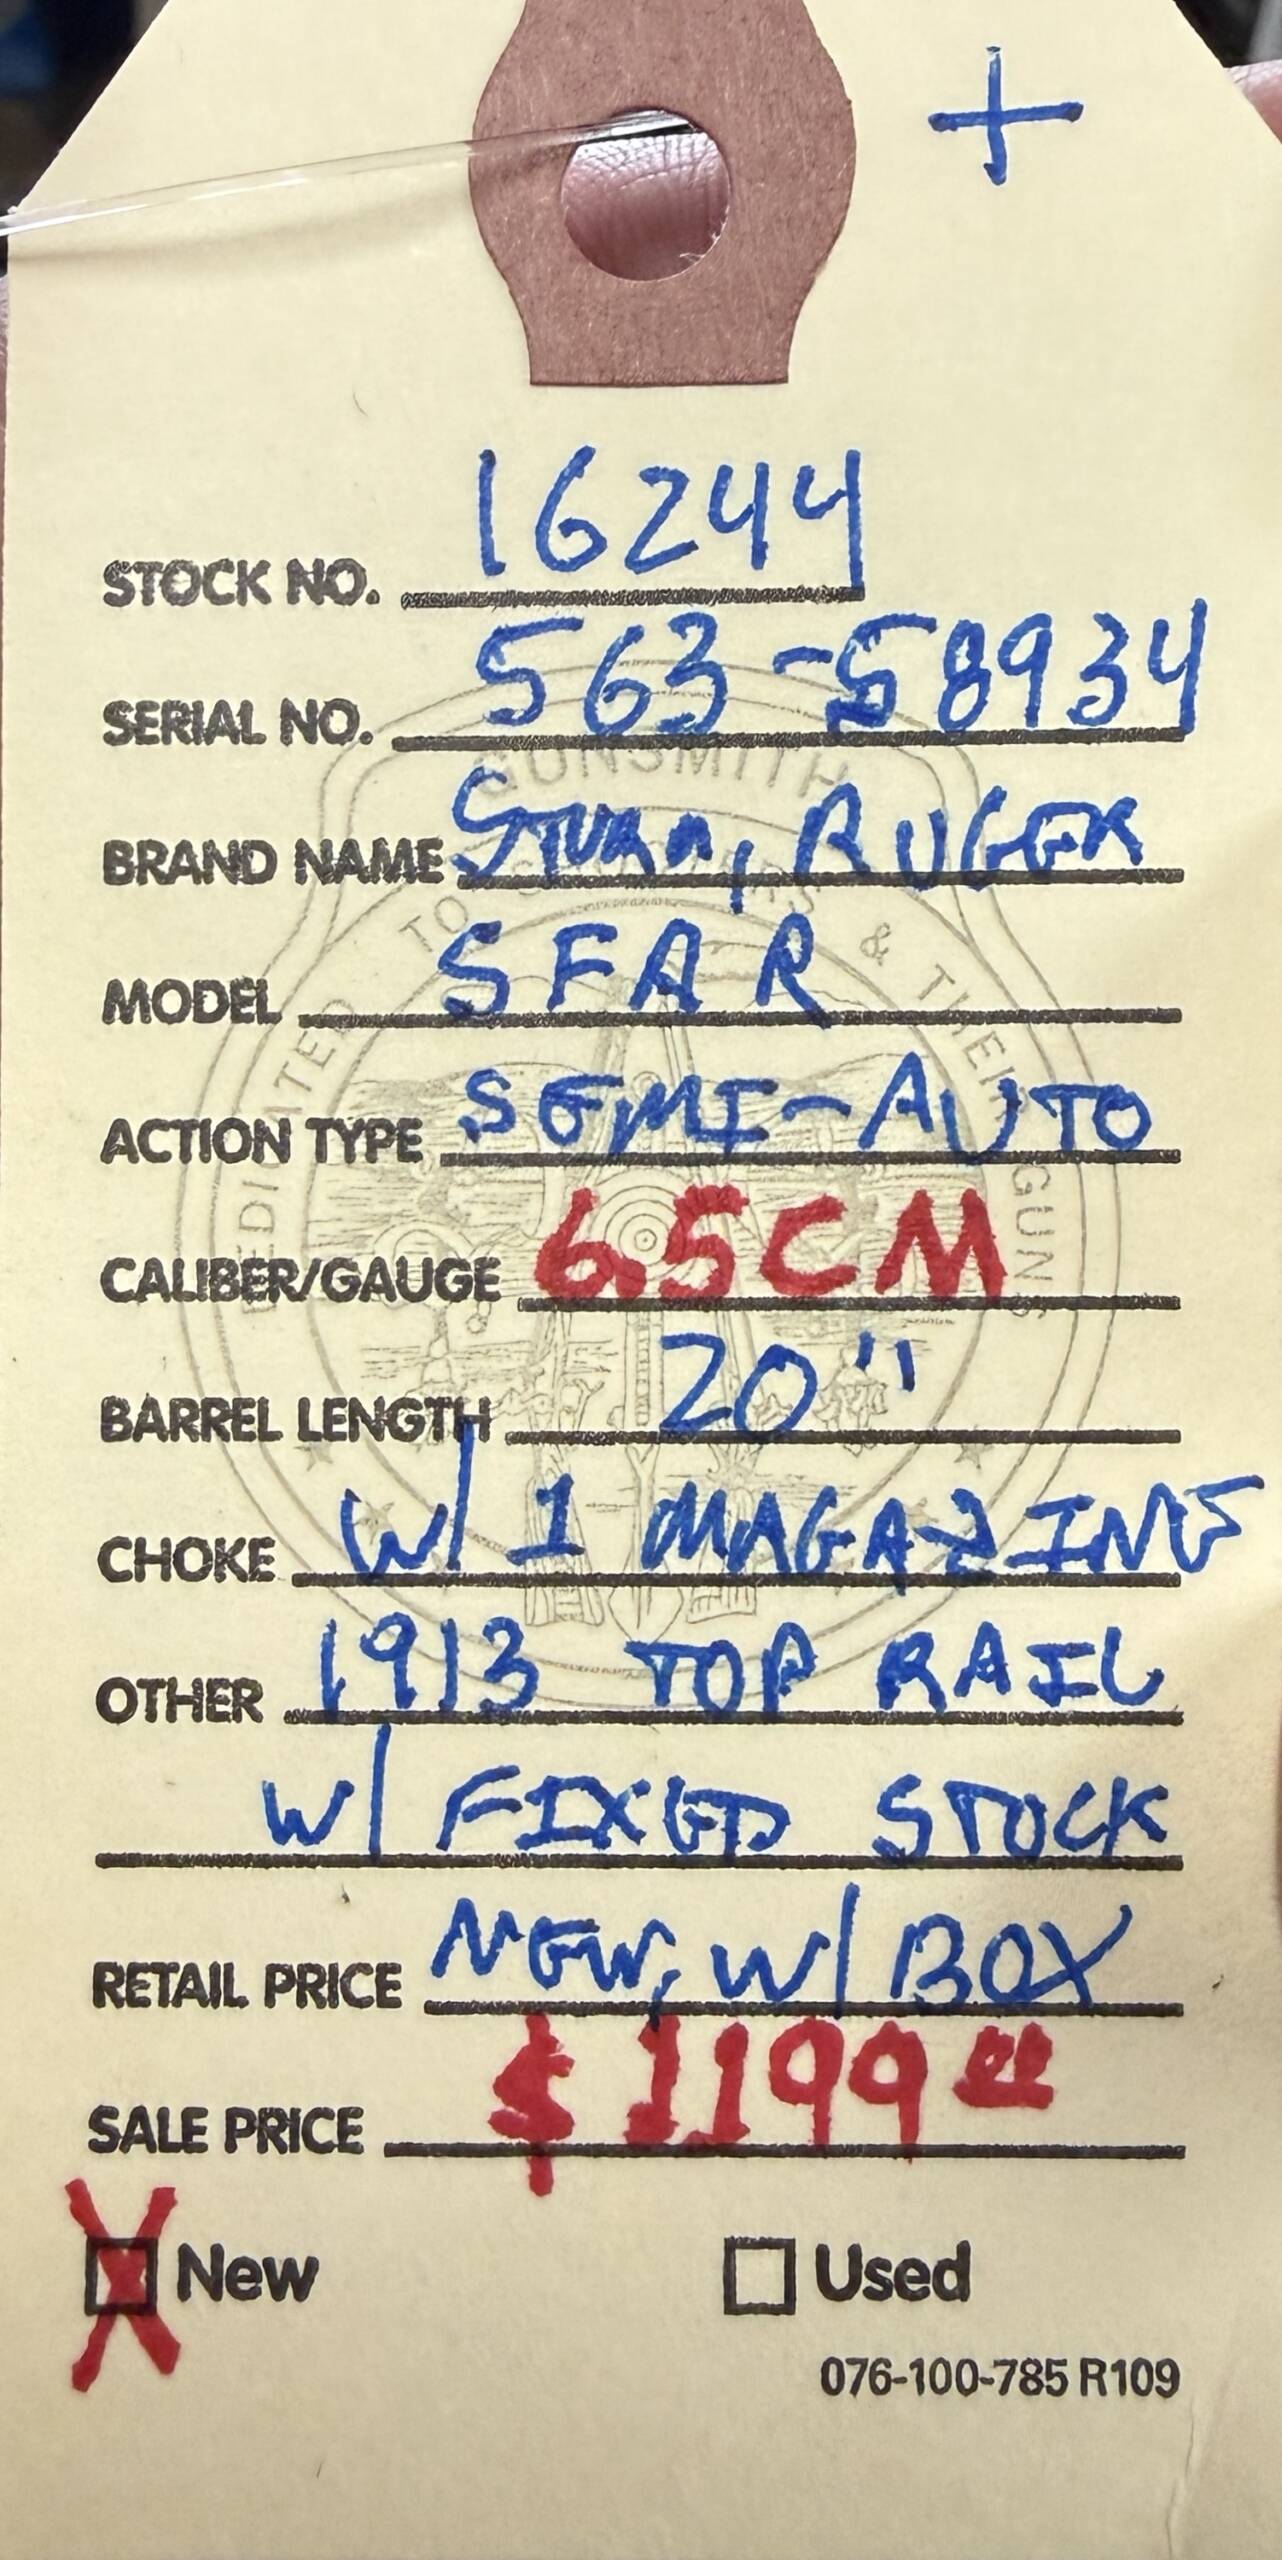 +
STOCK NO. 16244
SERIAL NO. 563-58934
BRAND NAME STURM, RUGER
MODEL SFAR
ACTION TYPE SEMI-AUTO
CALIBER/GAUGE 6.5CM
BARREL LENGTH 20"
CHOKE W/ 1 MAGAZINE
OTHER 1913 TOP RAIL
W/ FIXED STOCK
RETAIL PRICE NEW, W/ BOX
SALE PRICE $1199 00
X New Used
076-100-785 R109
GUNSMITH
DEDICATED TO & THEIR GUNS